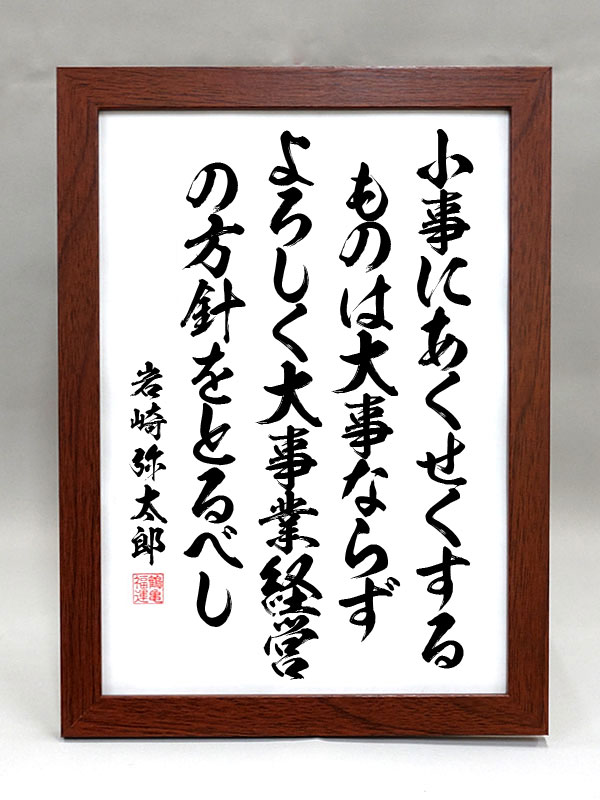 小事にあくせくする
ものは大事ならず
よろしく大事業経営
の方針をとるべし
岩崎弥太郎
鶴亀
福運